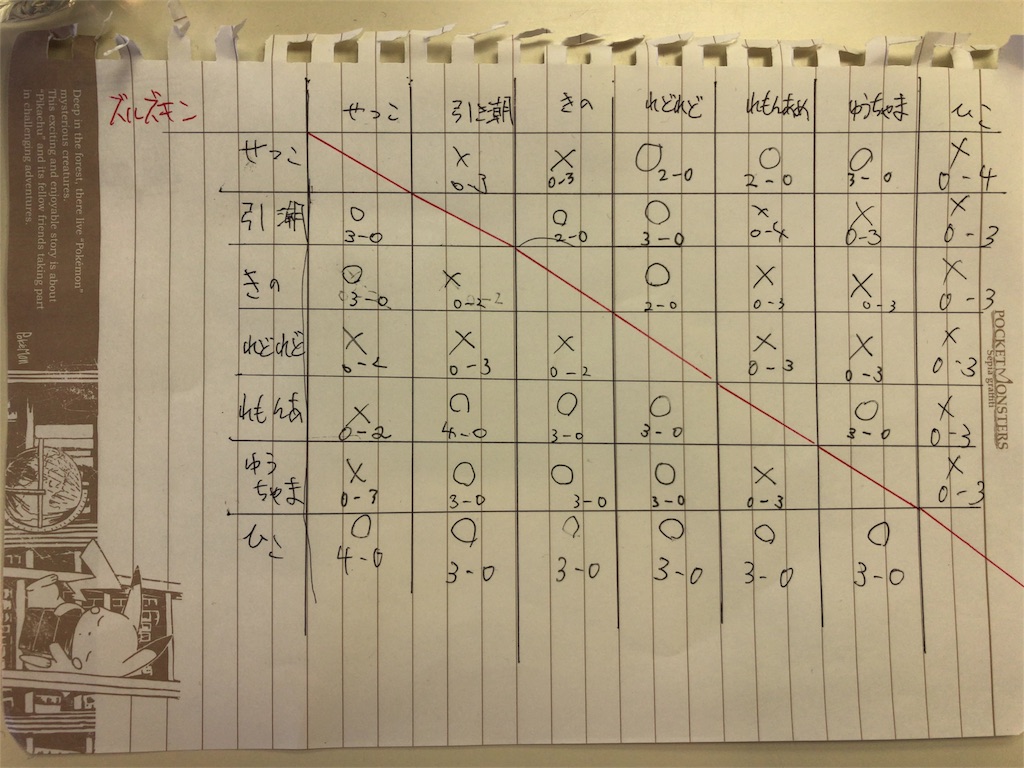 ズルズキン
せっこ 引き潮 きの れどれど れもんあめ ゆうちゃま ひこ
せっこ × 0-3 × 0-3 ○ 2-0 ○ 2-0 ○ 3-0 × 0-4
引潮 ○ 3-0 ○ 2-0 ○ 3-0 × 0-4 × 0-3 × 0-3
きの ○ 3-0 × 0-2 ○ 2-0 × 0-3 × 0-3 × 0-3
れどれど × 0-2 × 0-3 × 0-2 × 0-3 × 0-3 × 0-3
れもんあ × 0-2 ○ 4-0 ○ 3-0 ○ 3-0 ○ 3-0 × 0-3
ゆうちゃま × 0-3 ○ 3-0 ○ 3-0 ○ 3-0 × 0-3 × 0-3
ひこ ○ 4-0 ○ 3-0 ○ 3-0 ○ 3-0 ○ 3-0 ○ 3-0
Deep in the forest, there live "Pokemon"
mysterious creatures.
This exciting and enjoyable story is about
"Pikachu" and its fellow friends taking part
in challenging adventures.
POCKET MONSTERS
Sepia graffiti